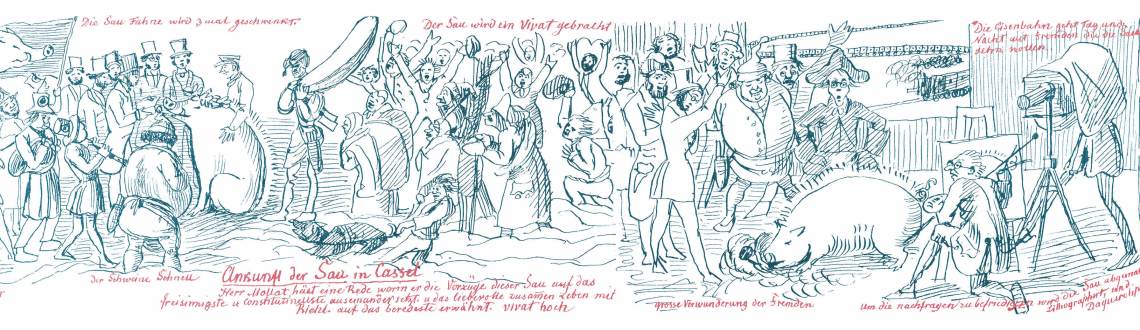 Die Sau Fahne wird 3 mal geschwenkt.
Der Sau wird ein Vivat gebracht
Die Eisenbahn geht Tag und
Nacht mit Fremden die die Sau
sehn wollen.
der Schweine Schnell
Ankunft der Sau in Cassel
Herr hält eine Rede worin er die Vorzüge dieser Sau auf das
freisinnigste u Constitutionellste auseinander setzt. u das liebevolle zusamen Leben mit
auf das beredeste erwähnt. vivat hoch
grosse Verwunderung der Fremden
um die nachfragen zu befriedigen wird die Sau
Lithographirt, und